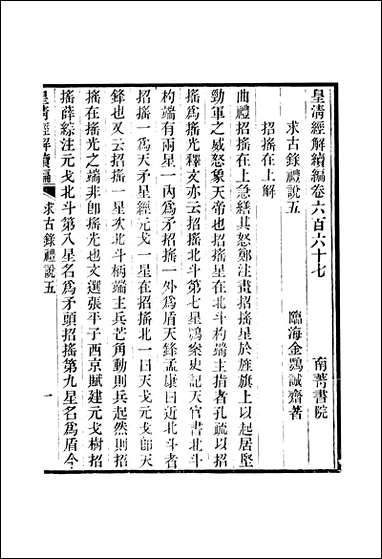 皇清經解續編卷六百六十七
南菁書院
求古錄禮說五
臨海金鶚誠齋著
招搖在上解
曲禮招搖在上急繕其怒鄭注畫招搖星於旌旗上以起居堅
勁軍之威怒象天帝也招搖星在北斗杓端主指者孔疏以招
搖為搖光釋文亦云招搖北斗第七星鶚案史記天官書北斗
杓端有兩星一內為矛招搖一外為盾天鋒孟康曰近北斗者
招搖一為天矛星經元戈一星在招搖北一曰天戈元戈卽天
鋒也又云招搖一星次北斗柄端主兵芒角動則兵起然則招
搖在搖光之端非卽搖光也文選張平子西京賦建元戈樹招
搖薛綜注元戈北斗第八星名為矛頭招搖第九星名為盾今
皇清經解續編
求古錄禮說五
一